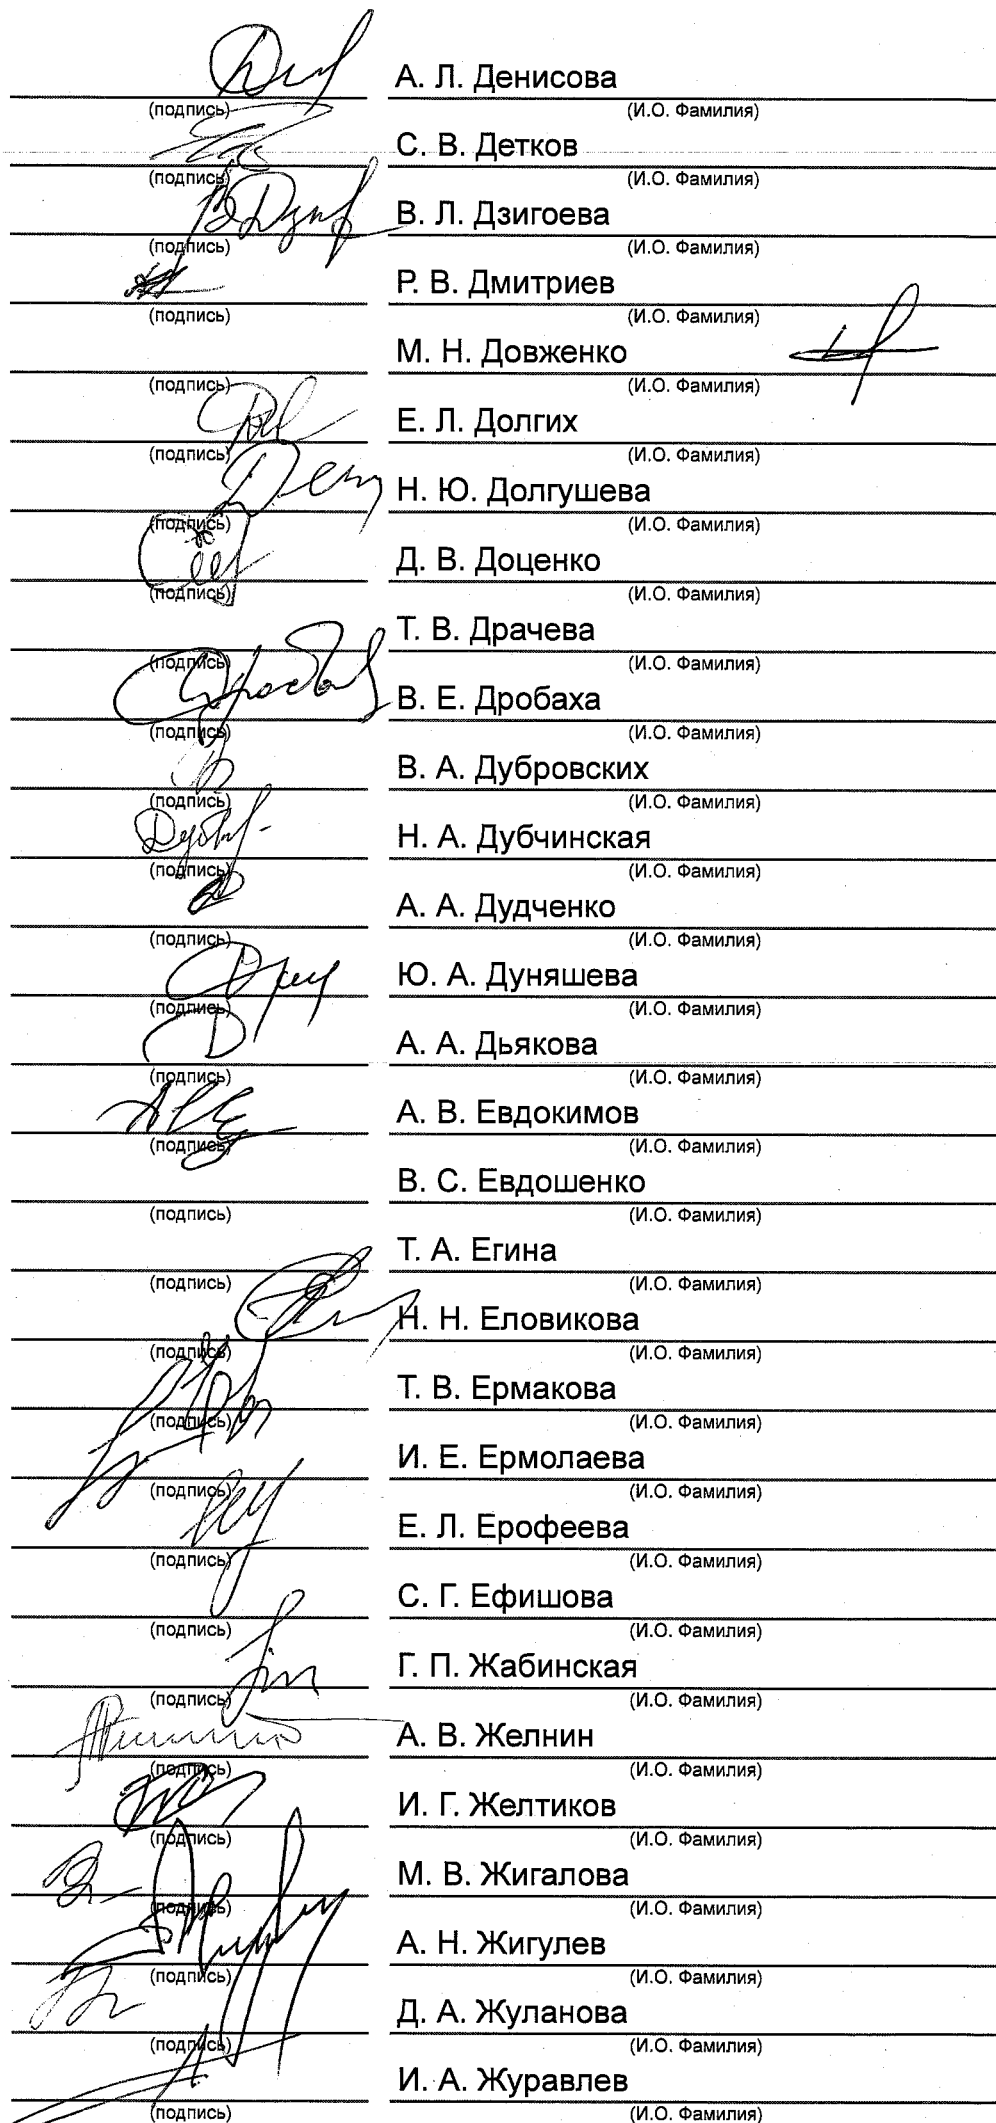 А. Л. Денисова
(подпись) (И.О. Фамилия)
С. В. Детков
(подпись) (И.О. Фамилия)
В. Л. Дзигоева
(подпись) (И.О. Фамилия)
Р. В. Дмитриев
(подпись) (И.О. Фамилия)
М. Н. Довженко
(подпись) (И.О. Фамилия)
Е. Л. Долгих
(подпись) (И.О. Фамилия)
Н. Ю. Долгушева
(подпись) (И.О. Фамилия)
Д. В. Доценко
(подпись) (И.О. Фамилия)
Т. В. Драчева
(подпись) (И.О. Фамилия)
В. Е. Дробаха
(подпись) (И.О. Фамилия)
В. А. Дубровских
(подпись) (И.О. Фамилия)
Н. А. Дубчинская
(подпись) (И.О. Фамилия)
А. А. Дудченко
(подпись) (И.О. Фамилия)
Ю. А. Дуняшева
(подпись) (И.О. Фамилия)
А. А. Дьякова
(подпись) (И.О. Фамилия)
А. В. Евдокимов
(подпись) (И.О. Фамилия)
В. С. Евдошенко
(подпись) (И.О. Фамилия)
Т. А. Егина
(подпись) (И.О. Фамилия)
Н. Н. Еловикова
(подпись) (И.О. Фамилия)
Т. В. Ермакова
(подпись) (И.О. Фамилия)
И. Е. Ермолаева
(подпись) (И.О. Фамилия)
Е. Л. Ерофеева
(подпись) (И.О. Фамилия)
С. Г. Ефишова
(подпись) (И.О. Фамилия)
Г. П. Жабинская
(подпись) (И.О. Фамилия)
А. В. Желнин
(подпись) (И.О. Фамилия)
И. Г. Желтиков
(подпись) (И.О. Фамилия)
М. В. Жигалова
(подпись) (И.О. Фамилия)
А. Н. Жигулев
(подпись) (И.О. Фамилия)
Д. А. Жуланова
(подпись) (И.О. Фамилия)
И. А. Журавлев
(подпись) (И.О. Фамилия)